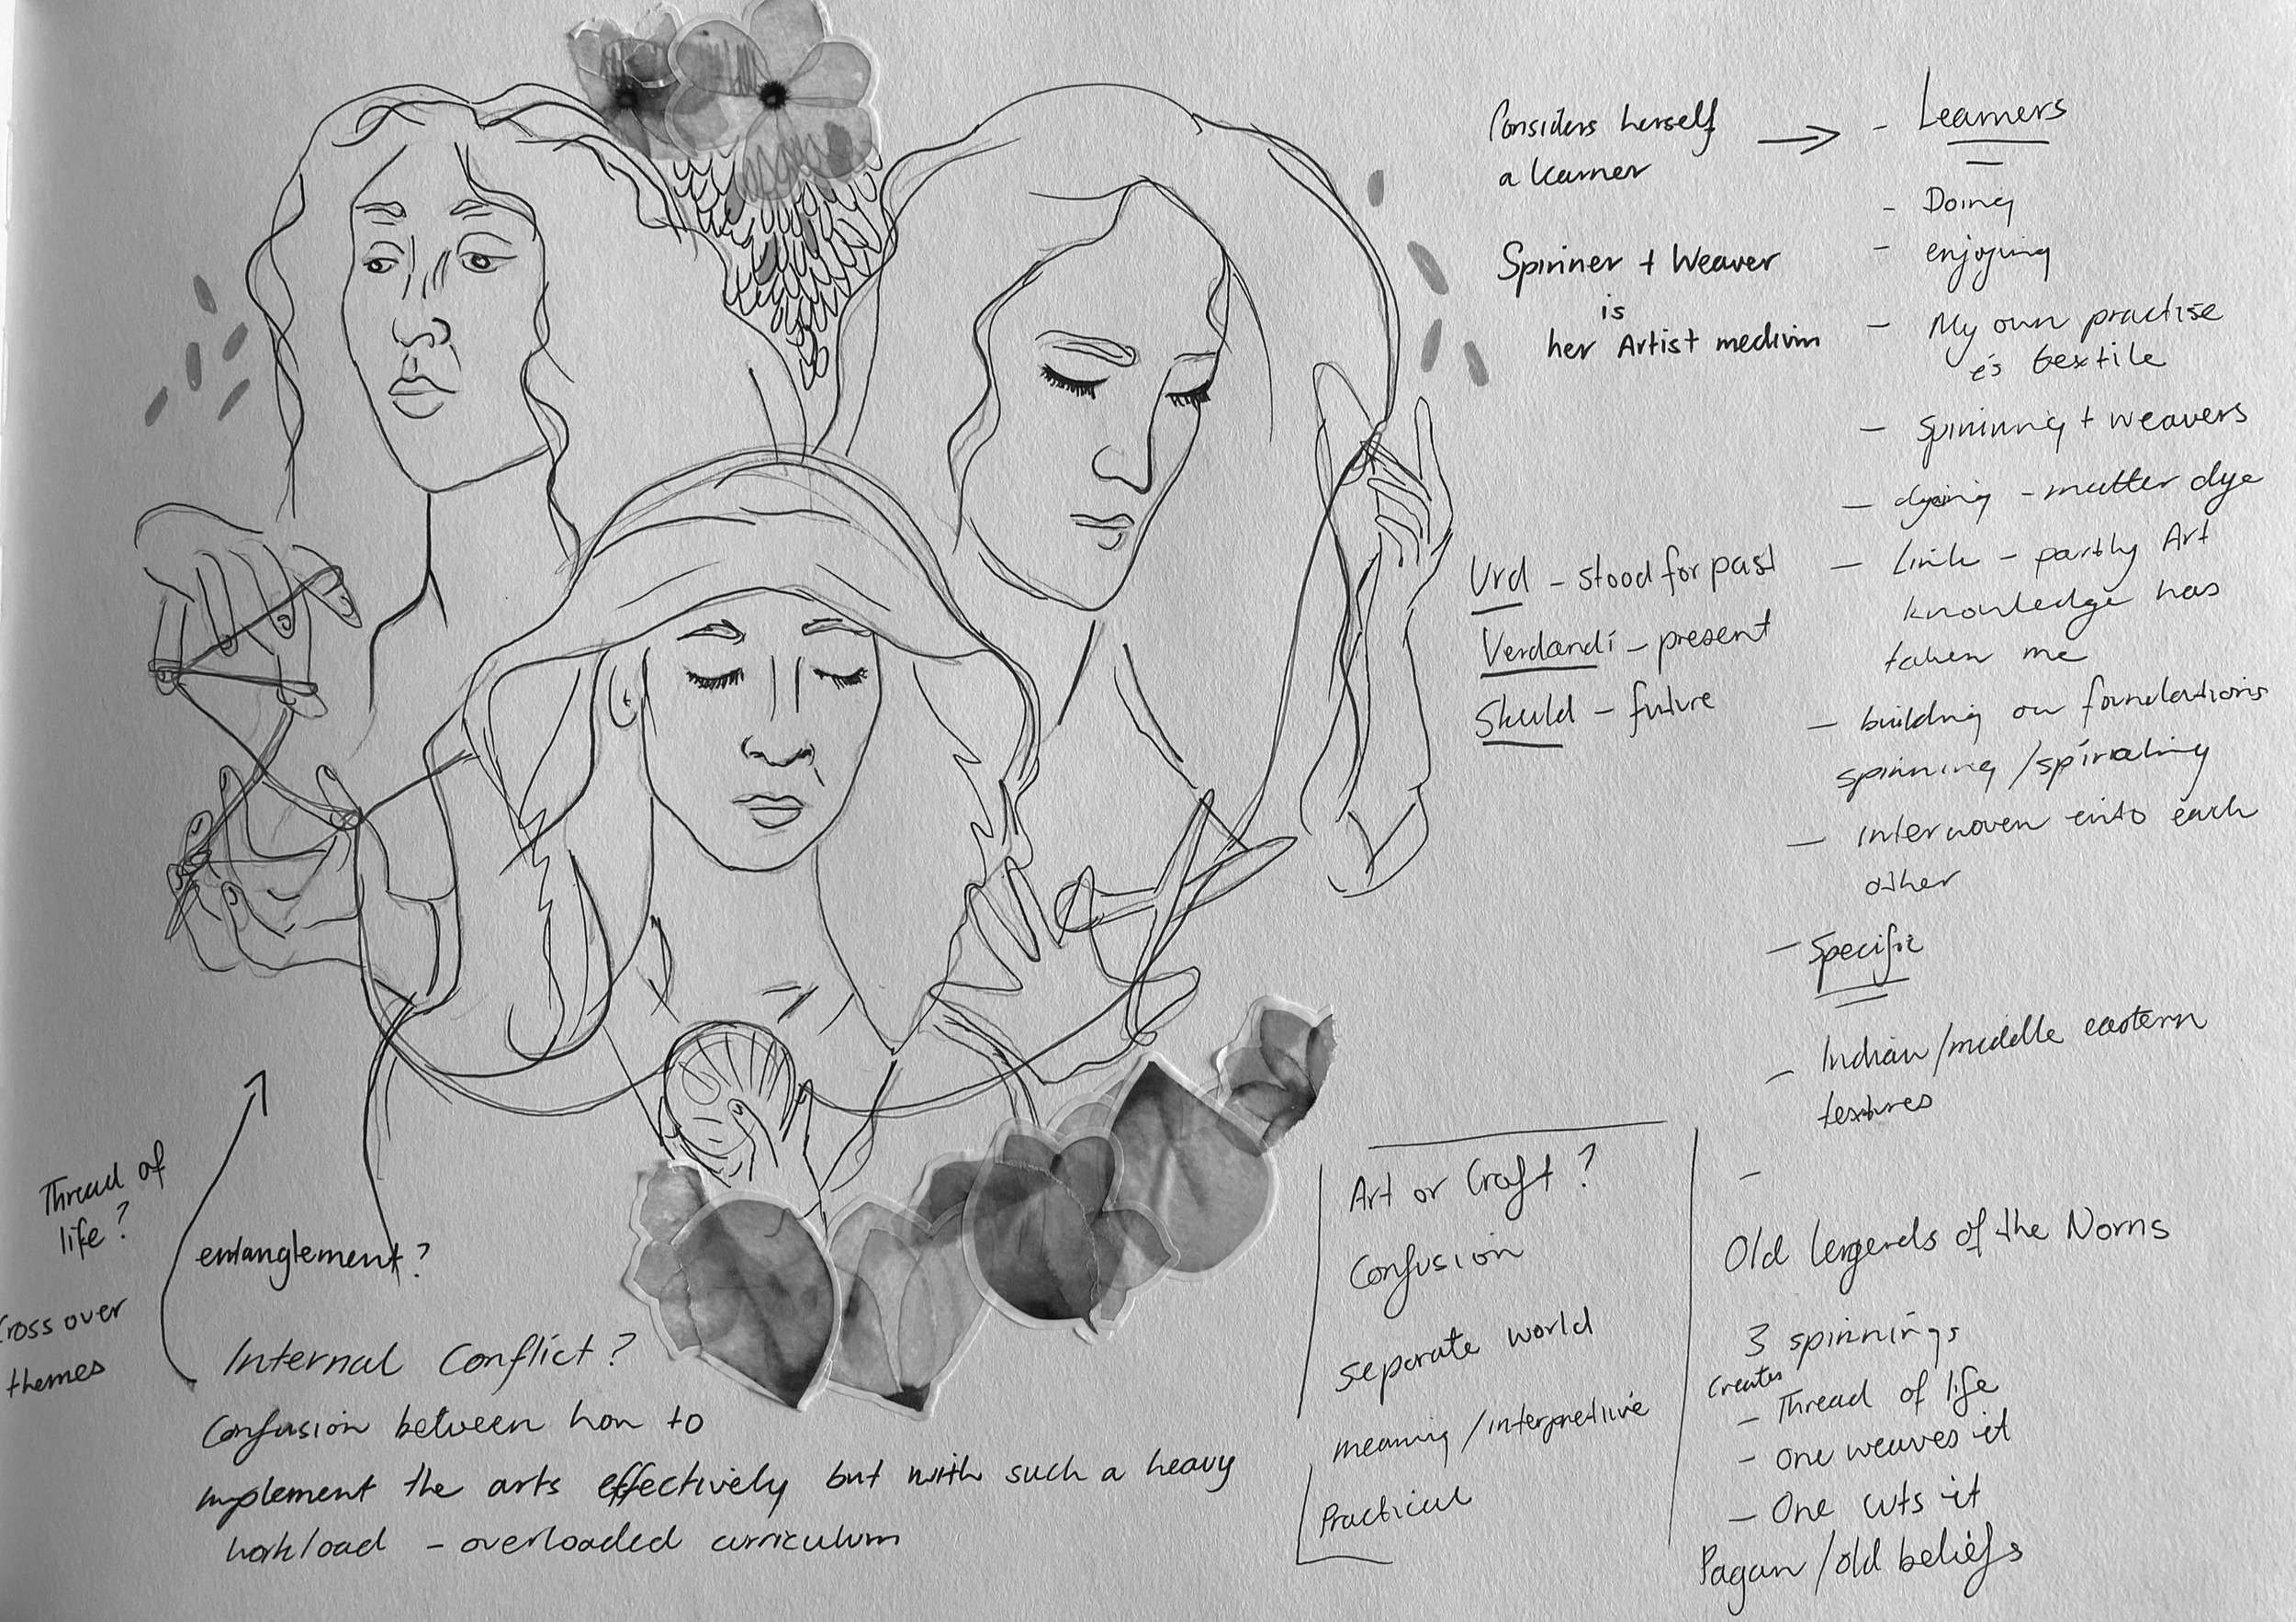 Considers herself
a learner
Spinner + Weaver
is
her Artist medium
- Learners
- Doing
- enjoying
- My own practise
is textile
- Spinning + weavers
- dyeing - matter dye
- Link - partly Art
knowledge has
taken me
- building on foundations
spinning / spiraling
- interwoven into each
other
- Specific
- Indian / middle eastern
textures
-
Urd - stood for past
Verdandi - present
Skuld - future
Thread of
life?
entanglement?
Cross over
themes
Internal Conflict?
Confusion between how to
implement the arts effectively but with such a heavy
workload - overloaded curriculum
Art or Craft?
Confusion
separate world
meaning / interpretive
Practical
Old lengends of the Norns
3 spinnings
creates
- Thread of life
- one weaves it
- One cuts it
Pagan / old beliefs